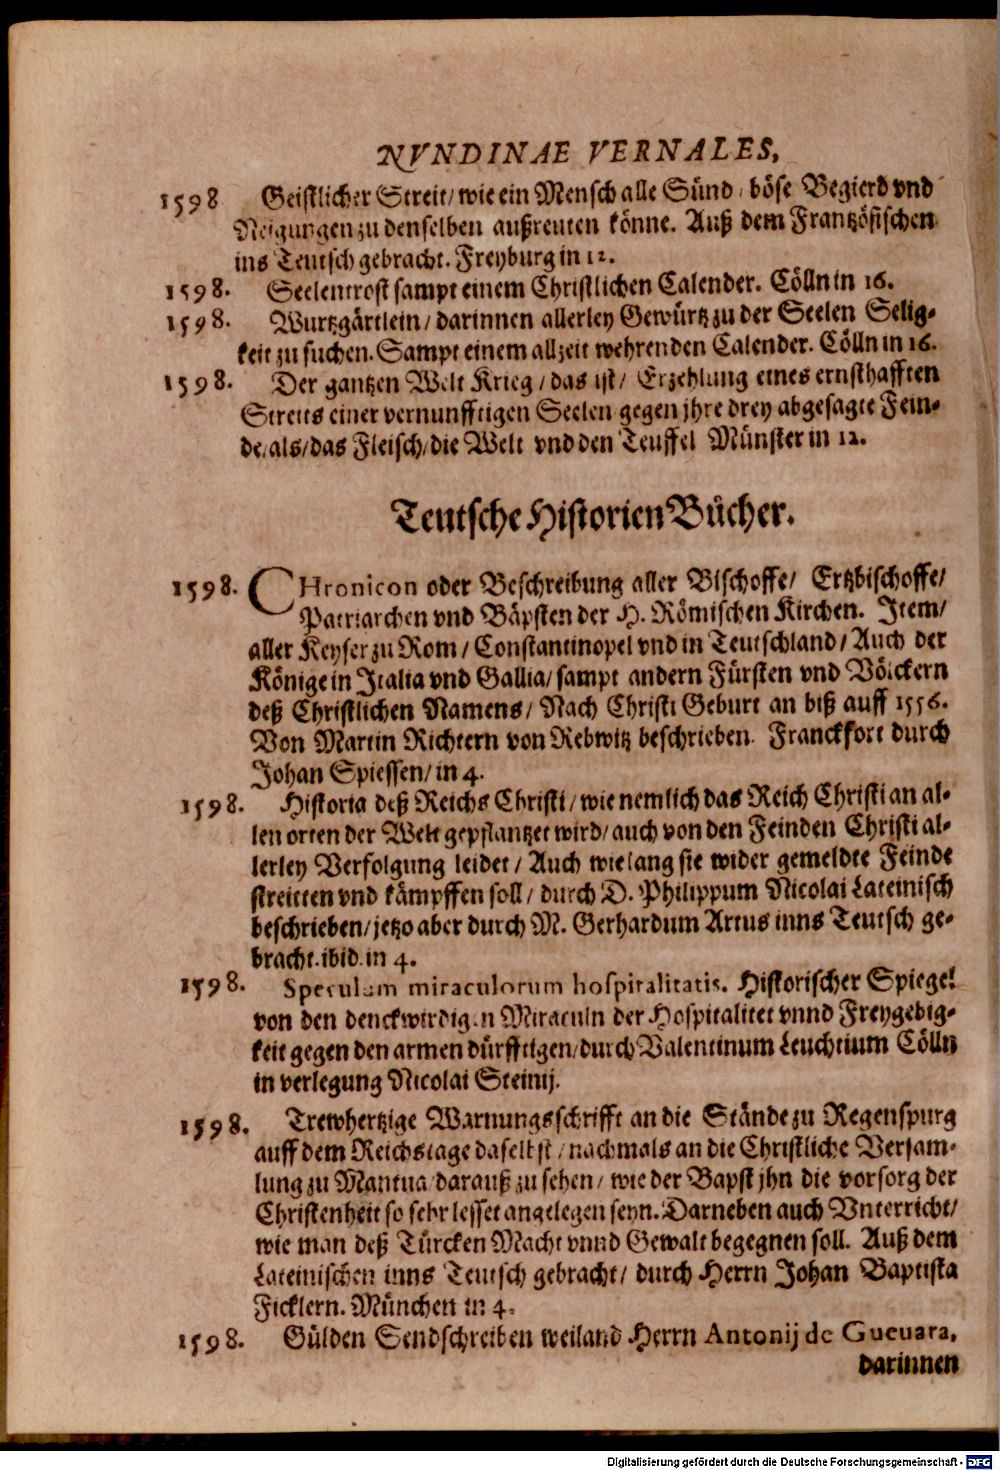 NVNDINAE VERNALES,
1598 Geistlicher Streit/ wie ein Mensch alle Sünd/ böse Begierd vnd
Neigungen zu denselben außreuten könne. Auß dem Frantzösischen
ins Teutsch gebracht. Freyburg in 12.
1598. Seelentrost sampt einem Christlichen Calender. Cölln in 16.
1598. Wurtzgärtlein/ darinnen allerley Gewürtz zu der Seelen Selig-
keit zu suchen. Sampt einem allzeit wehrenden Calender. Cölln in 16.
1598. Der gantzen Welt Krieg/ das ist/ Erzehlung eines ernsthafften
Streits einer vernunfftigen Seelen gegen jhre drey abgesagte Fein-
de/ als/ das Fleisch/ die Welt vnd den Teuffel Münster in 12.
Teutsche Historien Bücher.
1598. CHronicon oder Beschreibung aller Bischoffe/ Ertzbischoffe/
Patriarchen vnd Bäpsten der H. Römischen Kirchen. Item/
aller Keyser zu Rom/ Constantinopel vnd in Teutschland/ Auch der
Könige in Italia vnd Gallia/ sampt andern Fürsten vnd Völckern
deß Christlichen Namens/ Nach Christi Geburt an biß auff 1556.
Von Martin Richtern von Rebwitz beschrieben. Franckfort durch
Johan Spiessen/ in 4.
1598. Historia deß Reichs Christi/ wie nemlich das Reich Christi an al-
len orten der Welt gepflantzet wird/ auch von den Feinden Christi al-
lerley Verfolgung leidet/ Auch wie lang sie wider gemeldte Feinde
streitten vnd kämpffen soll/ durch D. Philippum Nicolai Lateinisch
beschrieben/ jetzo aber durch M. Gerhardum Artus inns Teutsch ge-
bracht. ibid. in 4.
1598. Speculum miraculorum hospitalitatis. Historischer Spiegel
von den denckwirdigen Miraculn der Hospitalitet vnnd Freygebig-
keit gegen den armen dürfftigen/ durch Valentinum Leuchtium Cölln
in verlegung Nicolai Steinij.
1598. Trewhertzige Warnungsschrifft an die Stände zu Regenspurg
auff dem Reichstage daselbst/ nachmals an die Christliche Versam-
lung zu Mantua/ darauß zu sehen/ wie der Bapst jhn die vorsorg der
Christenheit so sehr lesset angelegen seyn. Darneben auch Vnterricht/
wie man deß Türcken Macht vnnd Gewalt begegnen soll. Auß dem
Lateinischen inns Teutsch gebracht/ durch Herrn Johan Baptista
Ficklern. München in 4.
1598. Gülden Sendschreiben weiland Herrn Antonij de Gueuara,
darinnen
Digitalisierung gefördert durch die Deutsche Forschungsgemeinschaft - DFG